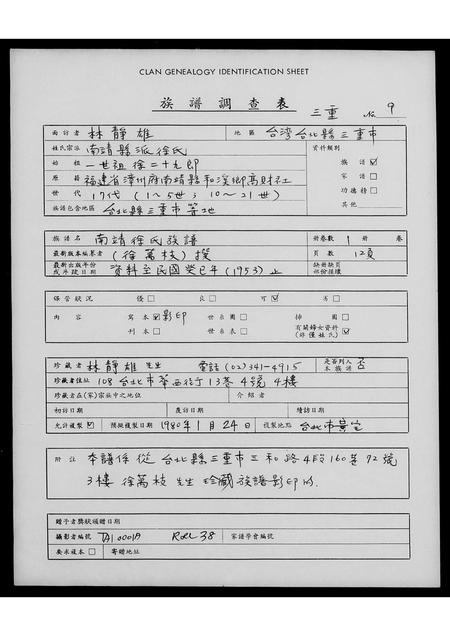 CLAN GENEALOGY IDENTIFICATION SHEET
族譜調查表 三重 No 9
面訪者 林靜雄 地區 台灣台北縣三重市
姓氏宗派 南靖縣派徐氏 資料類別
始祖 一世祖徐二十九郎 族譜☑
原籍 福建省漳州府南靖縣和溪鄉高財社 家譜☐
世代 17代 (1~5世; 10~21世) 功德榜☐
族譜包含地區 台北縣三重市等地 其他
族譜名 南靖徐氏族譜 冊卷數 1 冊 卷
最新版本編著者 (徐萬枝) 撰 頁數 12頁
最新出版年份或斗號日期 資料至民國癸巳年 (1953) 止 缺冊缺頁部份接續
保管狀況 優☐ 良☐ 可☑ 劣☐
內容 寫本☑影印 世系圖☐ 排圖☐
刊本☐ 世系表☐ 有關婦女資料(非僅姓氏)☑
珍藏者 林靜雄先生 電話 (02) 341-4915 是否列入本族譜 否
珍藏者住址 108 台北市華西街13巷4號4樓
珍藏者在(宗)家族中之地位 介紹者
初訪日期 覆訪日期 續訪日期
允許複製☑ 預擬複製日期 1980年1月24日 複製地點 台北市
附註 本譜係從台北縣三重市三和路4段160巷72號
3樓徐萬枝先生珍藏族譜影印的.
贈予者獎狀頒贈日期
攝影者編號 TAI 0001A Roll 38 家譜學會編號
要求複本☐ 寄贈地址